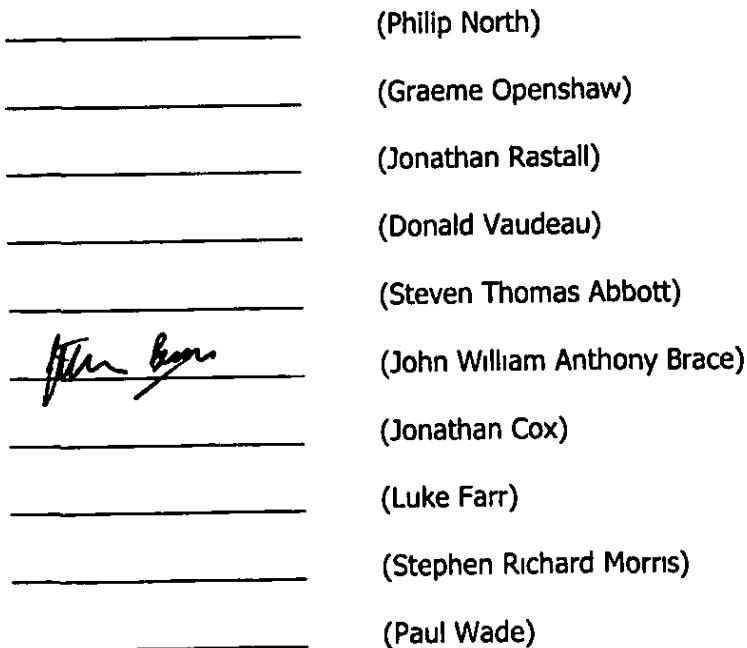 (Philip North)
(Graeme Openshaw)
(Jonathan Rastall)
(Donald Vaudeau)
(Steven Thomas Abbott)
(John William Anthony Brace)
(Jonathan Cox)
(Luke Farr)
(Stephen Richard Morris)
(Paul Wade)